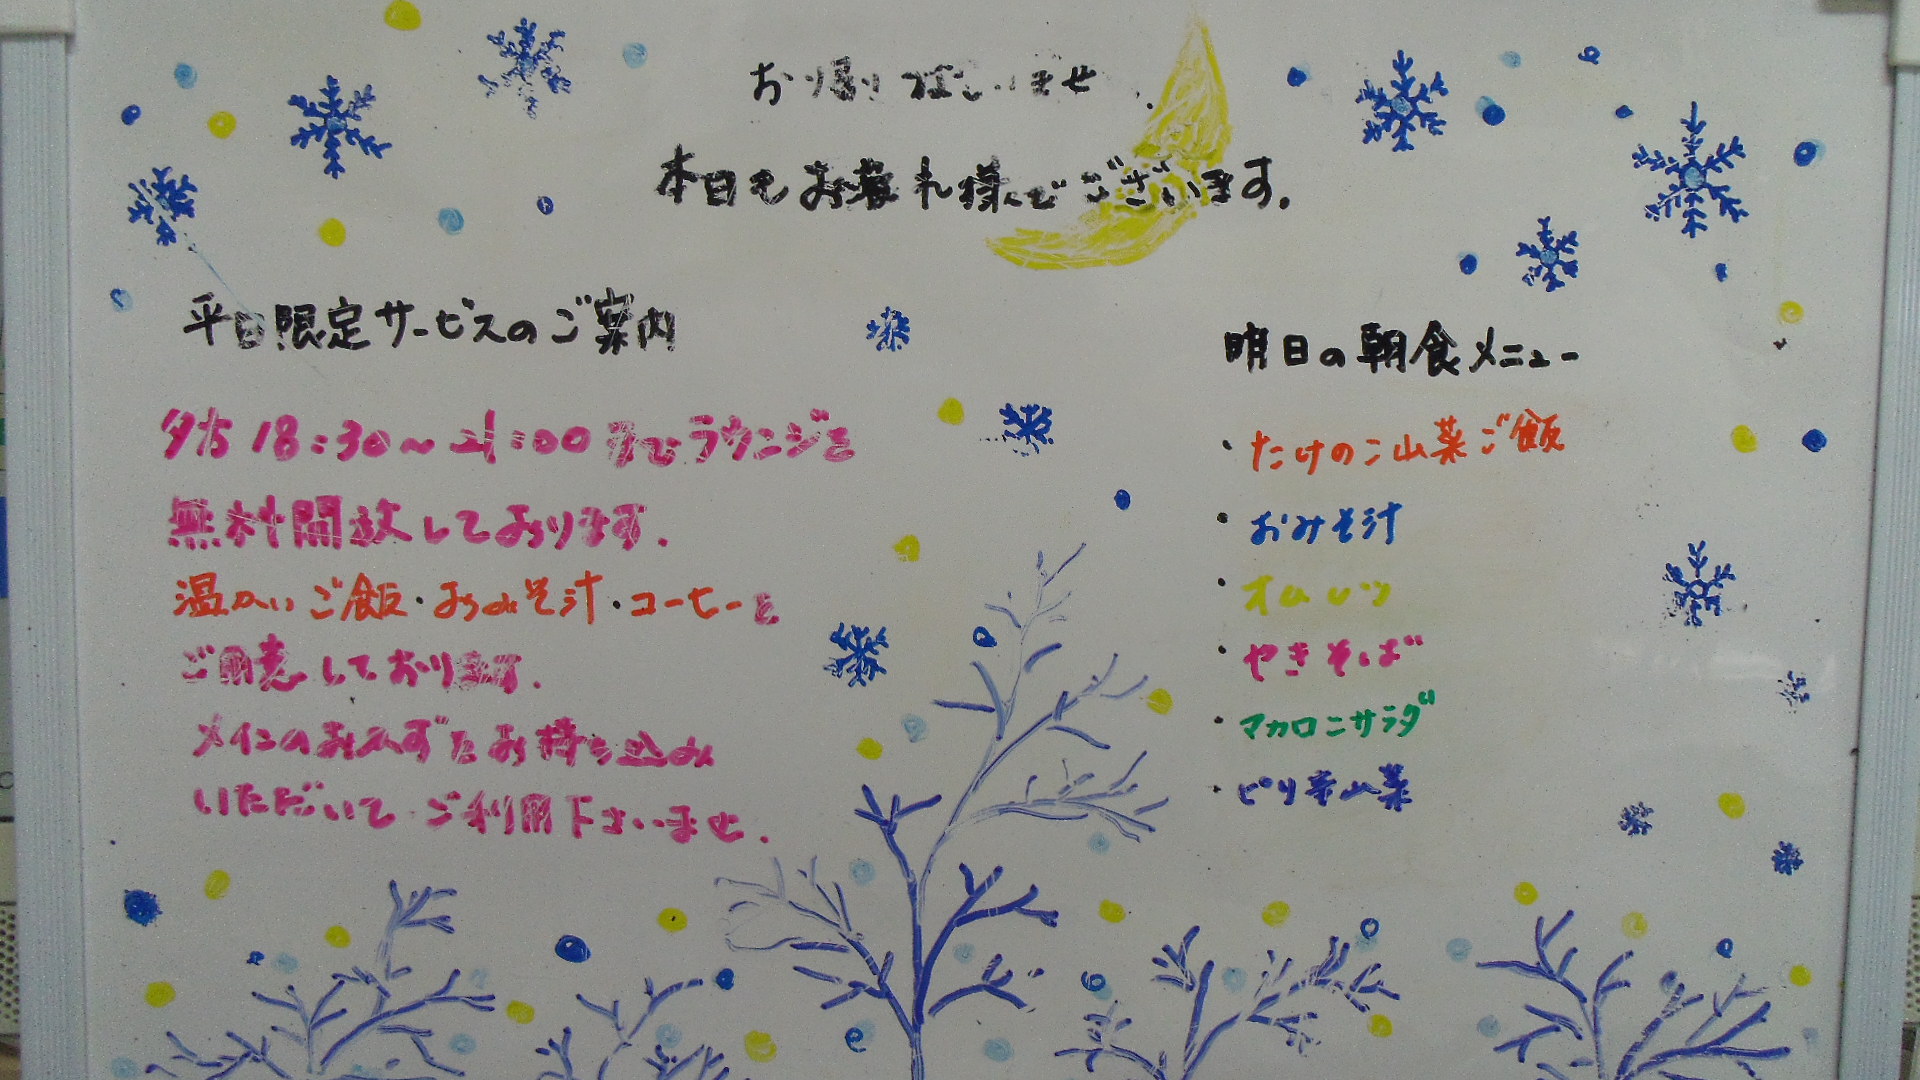 お帰りなさいませ
本日もお疲れ様でございます。
平日限定サービスのご案内
夕方18:30～21:00までラウンジを
無料開放しております。
温かいご飯・おみそ汁・コーヒーを
ご用意しております。
メインのおかずをお持ち込み
いただいて ご利用下さいませ。
明日の朝食メニュー
・たけのこ山菜ご飯
・おみそ汁
・オムレツ
・やきそば
・マカロニサラダ
・ピリ辛山菜